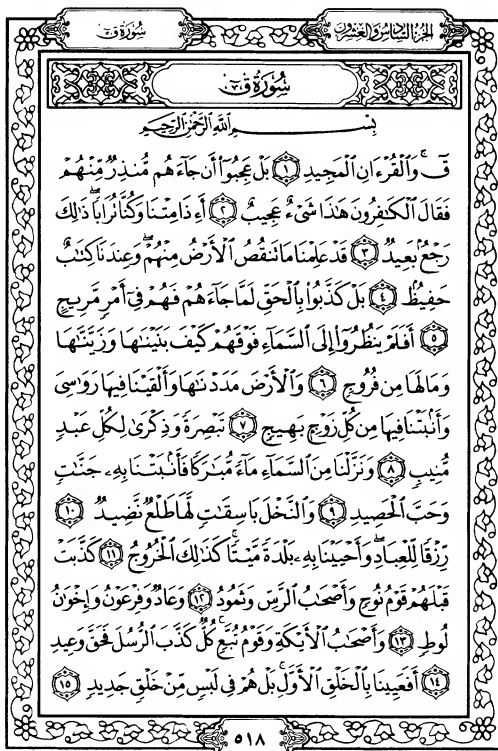 الجزء السادس والعشرون
سورة ق
سورة ق
بِسْمِ اللَّهِ الرَّحْمَٰنِ الرَّحِيمِ
قٓ ۚ وَٱلْقُرْءَانِ ٱلْمَجِيدِ ١ بَلْ عَجِبُوٓا۟ أَن جَآءَهُم مُّنذِرٌ مِّنْهُمْ
فَقَالَ ٱلْكَٰفِرُونَ هَٰذَا شَىْءٌ عَجِيبٌ ٢ أَءِذَا مِتْنَا وَكُنَّا تُرَابًا ۖ ذَٰلِكَ
رَجْعٌۢ بَعِيدٌ ٣ قَدْ عَلِمْنَا مَا تَنقُصُ ٱلْأَرْضُ مِنْهُمْ ۖ وَعِندَنَا كِتَٰبٌ
حَفِيظٌۢ ٤ بَلْ كَذَّبُوا۟ بِٱلْحَقِّ لَمَّا جَآءَهُمْ فَهُمْ فِىٓ أَمْرٍ مَّرِيجٍ
٥ أَفَلَمْ يَنظُرُوٓا۟ إِلَى ٱلسَّمَآءِ فَوْقَهُمْ كَيْفَ بَنَيْنَٰهَا وَزَيَّنَّٰهَا
وَمَا لَهَا مِن فُرُوجٍ ٦ وَٱلْأَرْضَ مَدَدْنَٰهَا وَأَلْقَيْنَا فِيهَا رَوَٰسِىَ
وَأَنۢبَتْنَا فِيهَا مِن كُلِّ زَوْجٍۭ بَهِيجٍ ٧ تَبْصِرَةً وَذِكْرَىٰ لِكُلِّ عَبْدٍ
مُّنِيبٍ ٨ وَنَزَّلْنَا مِنَ ٱلسَّمَآءِ مَآءً مُّبَٰرَكًا فَأَنۢبَتْنَا بِهِۦ جَنَّٰتٍ
وَحَبَّ ٱلْحَصِيدِ ٩ وَٱلنَّخْلَ بَاسِقَٰتٍ لَّهَا طَلْعٌ نَّضِيدٌ ١٠
رِّزْقًا لِّلْعِبَادِ ۖ وَأَحْيَيْنَا بِهِۦ بَلْدَةً مَّيْتًا ۚ كَذَٰلِكَ ٱلْخُرُوجُ ١١ كَذَّبَتْ
قَبْلَهُمْ قَوْمُ نُوحٍ وَأَصْحَٰبُ ٱلرَّسِّ وَثَمُودُ ١٢ وَعَادٌ وَفِرْعَوْنُ وَإِخْوَٰنُ
لُوطٍ ١٣ وَأَصْحَٰبُ ٱلْأَيْكَةِ وَقَوْمُ تُبَّعٍ ۚ كُلٌّ كَذَّبَ ٱلرُّسُلَ فَحَقَّ وَعِيدِ
١٤ أَفَعَيِينَا بِٱلْخَلْقِ ٱلْأَوَّلِ ۚ بَلْ هُمْ فِى لَبْسٍ مِّنْ خَلْقٍ جَدِيدٍ ١٥
٥١٨